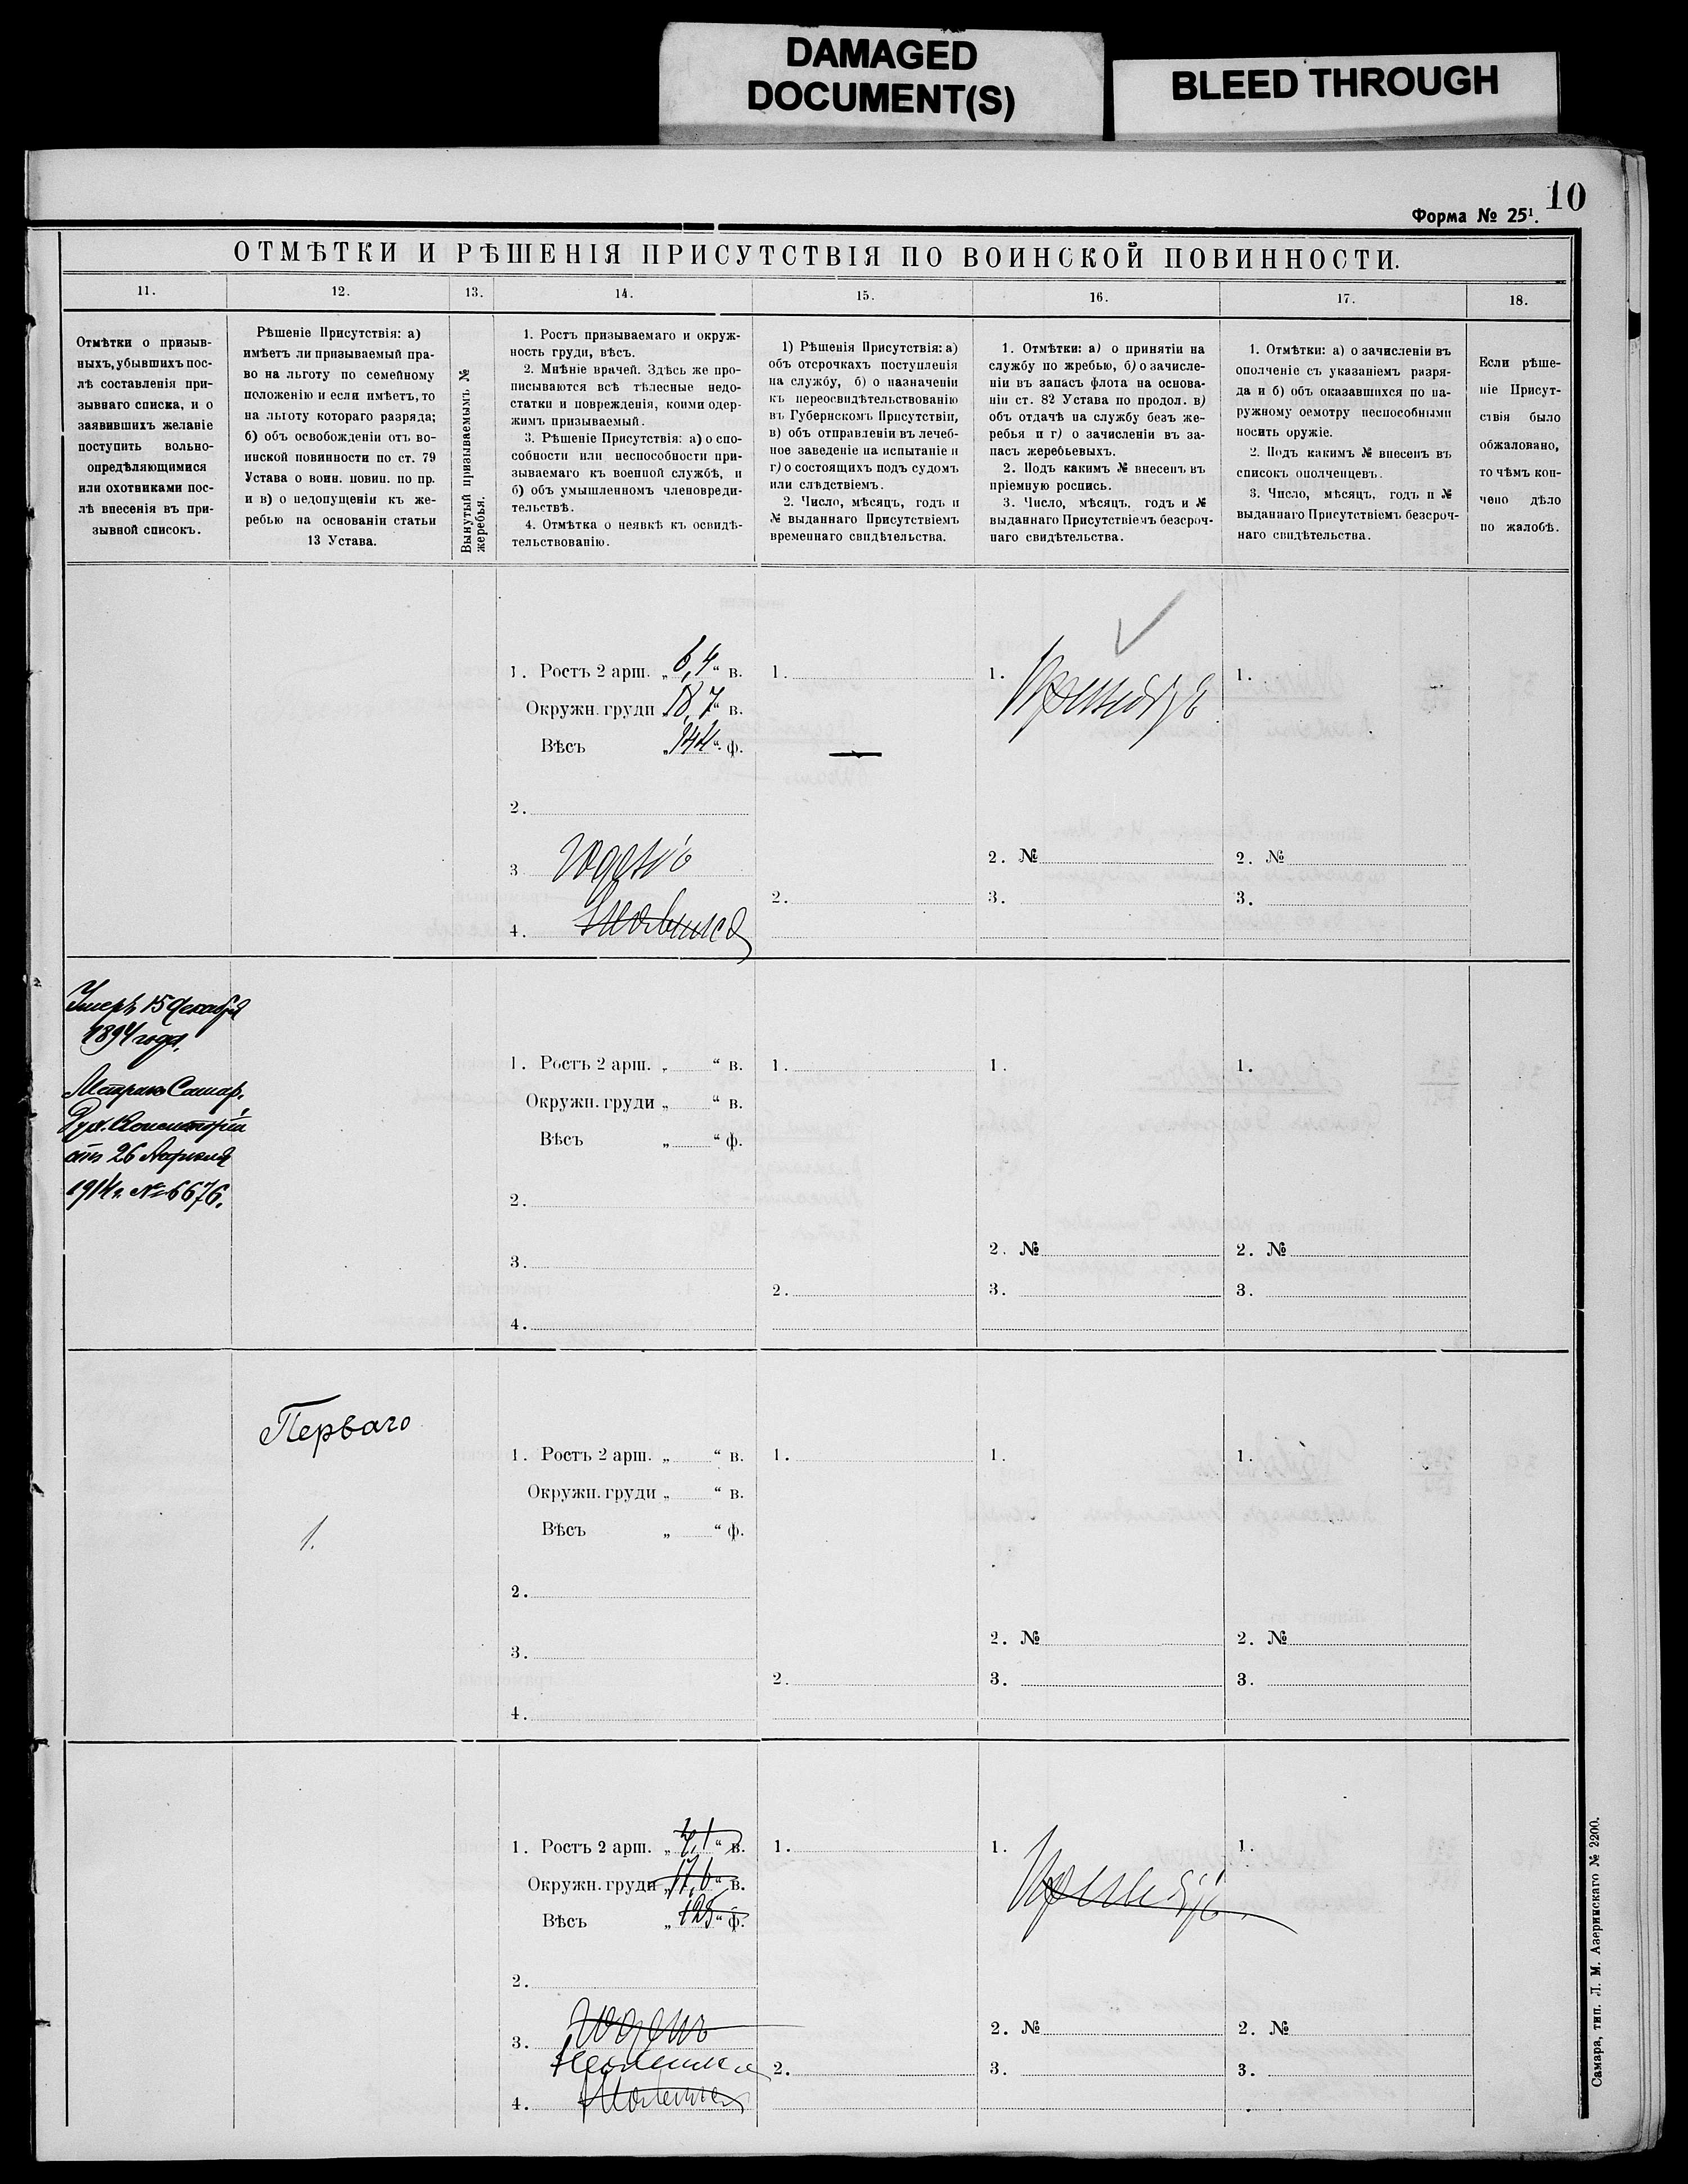 DAMAGED
DOCUMENT(S)
BLEED THROUGH
10
Форма № 25¹.
ОТМѢТКИ И РѢШЕНІЯ ПРИСУТСТВІЯ ПО ВОИНСКОЙ ПОВИННОСТИ.
11.
12.
13.
14.
15.
16.
17.
18.
Отмѣтки о призыв-
ныхъ, убывшихъ пос-
лѣ составленія при-
зывнаго списка, и о
заявившихъ желаніе
поступить вольно-
опредѣляющимися
или охотниками пос-
лѣ внесенія въ при-
зывной списокъ.
Рѣшеніе Присутствія: а)
имѣетъ ли призываемый пра-
во на льготу по семейному
положенію и если имѣетъ, то
на льготу котораго разряда;
б) объ освобожденіи отъ во-
инской повинности по ст. 79
Устава о воин. повин. по пр.
и в) о недопущеніи къ же-
ребью на основаніи статьи
13 Устава.
Вынутый призываемымъ №
жеребья.
1. Ростъ призываемаго и окруж-
ность груди, вѣсъ.
2. Мнѣніе врачей. Здѣсь же про-
писываются всѣ тѣлесные недо-
статки и поврежденія, коими одер-
жимъ призываемый.
3. Рѣшеніе Присутствія: а) о спо-
собности или неспособности при-
зываемаго къ военной службѣ, и
б) объ умышленномъ членовреди-
тельствѣ.
4. Отмѣтка о неявкѣ къ освидѣ-
тельствованію.
1) Рѣшенія Присутствія: а)
объ отсрочкахъ поступленія
на службу, б) о назначеніи
къ переосвидѣтельствованію
въ Губернскомъ Присутствіи,
в) объ отправленіи въ лечеб-
ное заведеніе на испытаніе и
г) о состоящихъ подъ судомъ
или слѣдствіемъ.
2. Число, мѣсяцъ, годъ и
№ выданнаго Присутствіемъ
временнаго свидѣтельства.
1. Отмѣтки: а) о принятіи на
службу по жребью, б) о зачисле-
ніи въ запасъ флота на основа-
ніи ст. 82 Устава по продол. в)
объ отдачѣ на службу безъ же-
ребья и г) о зачисленіи въ за-
пасъ жеребьевыхъ.
2. Подъ какимъ № внесенъ въ
пріемную роспись.
3. Число, мѣсяцъ, годъ и №
выданнаго Присутствіемъ безсроч-
наго свидѣтельства.
1. Отмѣтки: а) о зачисленіи въ
ополченіе съ указаніемъ разря-
да и б) объ оказавшихся по на-
ружному осмотру неспособными
носить оружіе.
2. Подъ какимъ № внесенъ въ
списокъ ополченцевъ.
3. Число, мѣсяцъ, годъ и №
выданнаго Присутствіемъ безсроч-
наго свидѣтельства.
Если рѣше-
ніе Присут-
ствія было
обжаловано,
то чѣмъ кон-
чено дѣло
по жалобѣ.
1. Ростъ 2 арш. „ 6,4 “ в.
Окружн. груди „ 18,7 “ в.
Вѣсъ „ 144 “ ф.
2.
3. Годенъ
4.
1.
2.
1.
2. №
3.
1.
2. №
3.
Умеръ 15 декабря
1894 года.
Метрика Самар.
Дух. Консисторіи
отъ 26 Апрѣля
1914 г. № 6676.
1. Ростъ 2 арш. „ “ в.
Окружн. груди „ “ в.
Вѣсъ „ “ ф.
2.
3.
4.
1.
2.
1.
2. №
3.
1.
2. №
3.
Перваго
1.
1. Ростъ 2 арш. „ “ в.
Окружн. груди „ “ в.
Вѣсъ „ “ ф.
2.
3.
4.
1.
2.
1.
2. №
3.
1.
2. №
3.
1. Ростъ 2 арш. „ “ в.
Окружн. груди „ 17,6 “ в.
Вѣсъ „ 125 “ ф.
2.
3. Годенъ
4.
1.
2.
1.
2. №
3.
1.
2. №
3.
Самара, тип. Л. М. Азеринскаго № 2200.